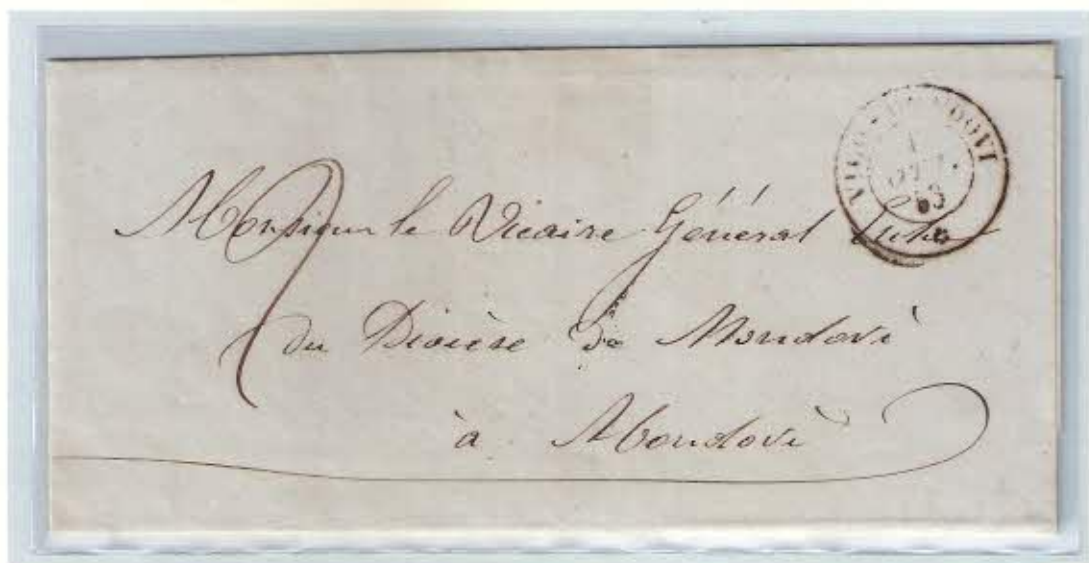 MONDOVI
63
Monsieur le Vicaire Général
du Diocèse de Mondovì
à Mondovì